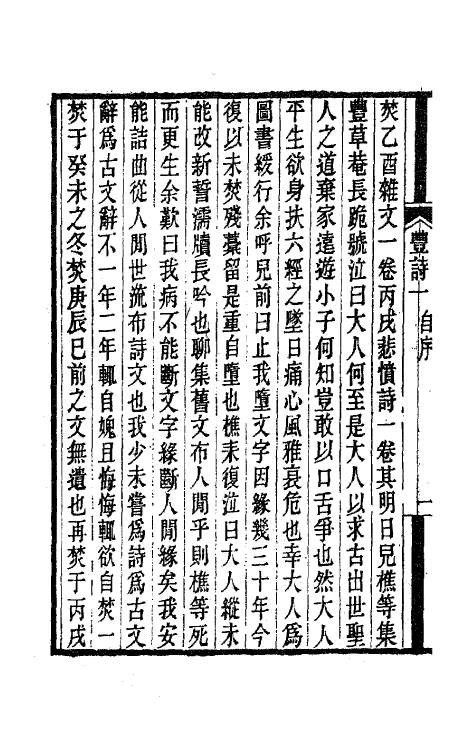 豐詩一 自序
焚乙酉雜文一卷丙戌悲憤詩一卷其明日兒樵等集
豐草菴長跪號泣曰大人何至是大人以求古出世聖
人之道棄家遠遊小子何知豈敢以口舌爭也然大人
平生欲身扶六經之墜日痛心風雅衰危也幸大人爲
圖書緩行余呼兒前曰止我墮文字因緣幾三十年今
復以未焚殘藁留是重自墮也樵未復泣曰大人縱未
能改新誓濡牘長吟也聊集舊文布人閒乎則樵等死
而更生余歎曰我病不能斷文字緣斷人閒緣矣我安
能詰曲從人閒世流布詩文也我少未嘗爲詩爲古文
辭爲古文辭不一年二年輒自媿且悔悔輒欲自焚一
焚于癸未之冬焚庚辰巳前之文無遺也再焚于丙戌